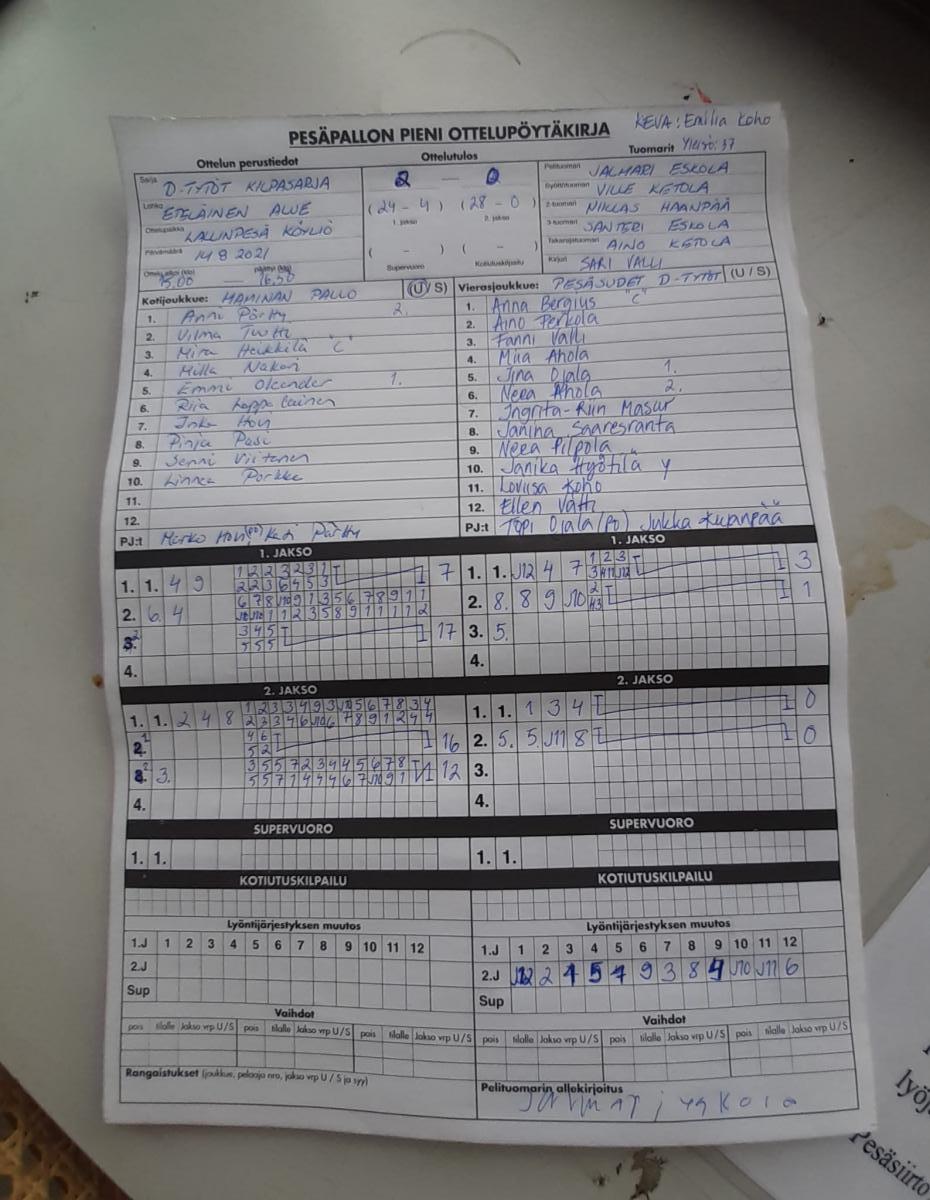 KEVA: Emilia Koho
PESÄPALLON PIENI OTTELUPÖYTÄKIRJA
Yleisö: 37
Ottelun perustiedot Ottelutulos Tuomarit
Sarja D-TYTÖT KILPASARJA 2 - 0 Pelituomari JALMARI ESKOLA
Lohko ETELÄINEN ALUE (24 - 4) (28 - 0) Syöttötuomari VILLE KETOLA
1. jakso 2. jakso 2-tuomari NIKLAS HAANPÄÄ
Ottelupaikka LALLINPESÄ KÖYLIÖ 3-tuomari SANTERI ESKOLA
Päivämäärä 14 8 2021 ( - ) ( - ) Takarajatuomari AINO KETOLA
Ottelu alkoi (klo) 15.00 päättyi (klo) 16.50 Supervuoro Kotiutuskilpailu Kirjuri SARI VALLI
Kotijoukkue: HAMINAN PALLO (U / S) Vierasjoukkue: PESÄSUDET D-TYTÖT (U / S)
1. Anni Pörtty 2. 1. Anna Bergius "C"
2. Vilma 2. Aino Perkola
3. Mira Heikkilä "C" 3. Fanni Valli
4. Milla Nakari 4. Miia Ahola
5. Emmi 1. 5. Jina Ojala 1.
6. Riia 6. Neea Ahola 2.
7. 7. Ingrita-Riin Masur
8. Pinja Pasi 8. Janina Saaresranta
9. Senni Viitanen 9. Neea Pilpola
10. Linnea 10. Janika Hyötilä
11. 11. Loviisa Koho
12. 12. Ellen
PJ:t Marko PJ:t Topi Ojala (PJ) Jukka
1. JAKSO 1. JAKSO
1. 1. 4 9 1 2 2 3 2 3 1 7 1. 1. J12 4 7 1 2 3 3
2 2 3 6 4 5 3 3 4 11 J12
2. 6. 4 6 7 8 J10 9 1 3 5 6 7 8 9 1 1 2. 8. 8 9 J10 2 1
J10 J10 1 1 2 3 5 8 9 1 1 1 1 2
3 4 5 17 3. 5.
5 5 5
4. 4.
2. JAKSO 2. JAKSO
1. 1. 2 4 8 1 2 3 3 4 9 3 J10 5 6 7 8 3 4 1. 1. 1 3 4 0
2 3 3 4 6 J10 6 7 8 9 1 2 4 4
4 6 16 2. 5. 5 J11 8 0
5 2
3. 3 5 5 7 2 3 4 4 5 6 7 8 12 3.
5 5 7 1 4 4 4 6 7 J10 9 1
4. 4.
SUPERVUORO SUPERVUORO
1. 1. 1. 1.
KOTIUTUSKILPAILU KOTIUTUSKILPAILU
Lyöntijärjestyksen muutos Lyöntijärjestyksen muutos
1.J 1 2 3 4 5 6 7 8 9 10 11 12 1.J 1 2 3 4 5 6 7 8 9 10 11 12
2.J 2.J J12 2 1 5 7 9 3 8 4 J10 J11 6
Sup Sup
Vaihdot Vaihdot
pois tilalle Jakso vrp U/S pois tilalle Jakso vrp U/S pois tilalle Jakso vrp U/S pois tilalle Jakso vrp U/S pois tilalle Jakso vrp U/S pois tilalle Jakso vrp U/S
Rangaistukset (joukkue, pelaaja nro, jakso vrp U / S ja syy) Pelituomarin allekirjoitus
Pesäsiirto